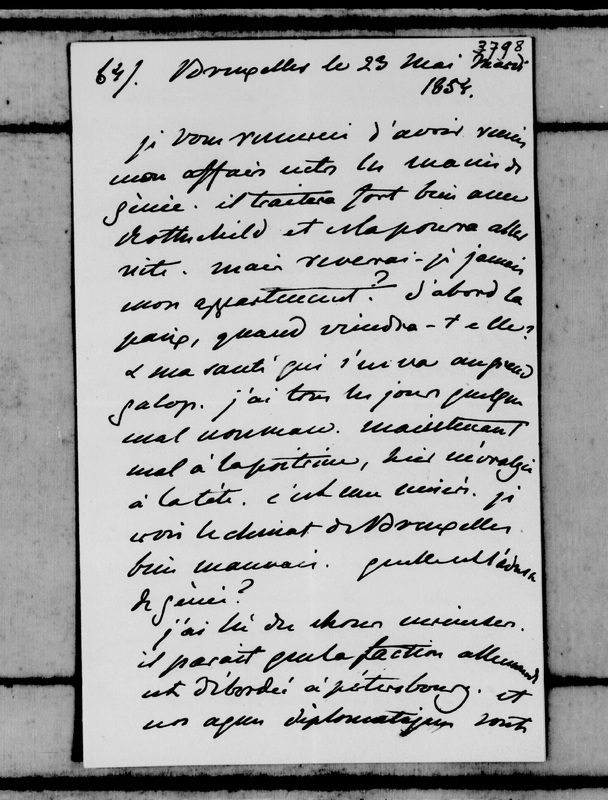 3798
64/. Bruxelles le 23 Mai Mardi
1854.
je vous remercie d'avoir remis
mon affaire entre les mains de
génie. il traitera fort bien avec
Rothschild et cela pourra aller
vite. mais reverrai-je jamais
mon appartement? d'abord la
paix, quand viendra-t-elle?
& ma santé qui s'en va au grand
galop. j'ai tous les jours quelque
mal nouveau. maintenant
mal à la poitrine, hier névralgie
à la tête. c'est une misère. je
crois le climat de Bruxelles
bien mauvais. quelle est l'adresse
de génie?
j'ai lu des choses curieuses.
il parait que la faction allemande
est débordée à pétersbourg. et
nos agens diplomatiques sont